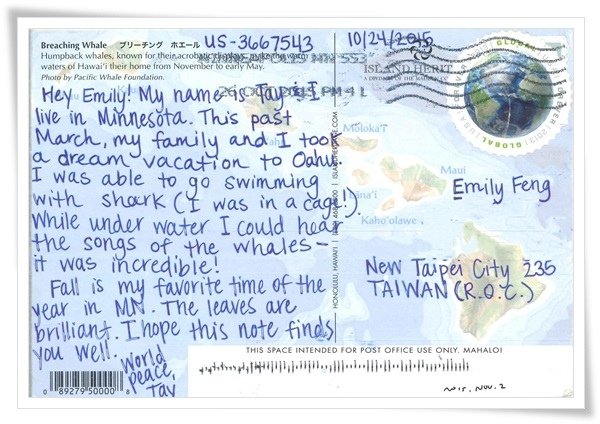 Breaching Whale ブリーチング ホエール
Humpback whales, known for their acrobatic displays, make the warm
waters of Hawai'i their home from November to early May.
Photo by Pacific Whale Foundation.
US-3667543
10/24/2015
Hey Emily! My name is Tay & I
live in Minnesota. This past
March, my family and I took
a dream vacation to Oahu.
I was able to go swimming
with shark (I was in a cage!).
While under water I could hear
the songs of the whales –
it was incredible!
Fall is my favorite time of the
year in MN. The leaves are
brilliant. I hope this note finds
you well.
World
peace,
Tay
0 89279 50000 8
26 OCT 2015 PM 4 L
ISLAND HERITAGE
GLOBAL
GLOBAL
Moloka'i
Maui
Lāna'i
Kaho'olawe
HONOLULU, HAWAI'I
Emily Feng
New Taipei City 235
TAIWAN (R.O.C.)
THIS SPACE INTENDED FOR POST OFFICE USE ONLY. MAHALO!
2015. NOV. 2